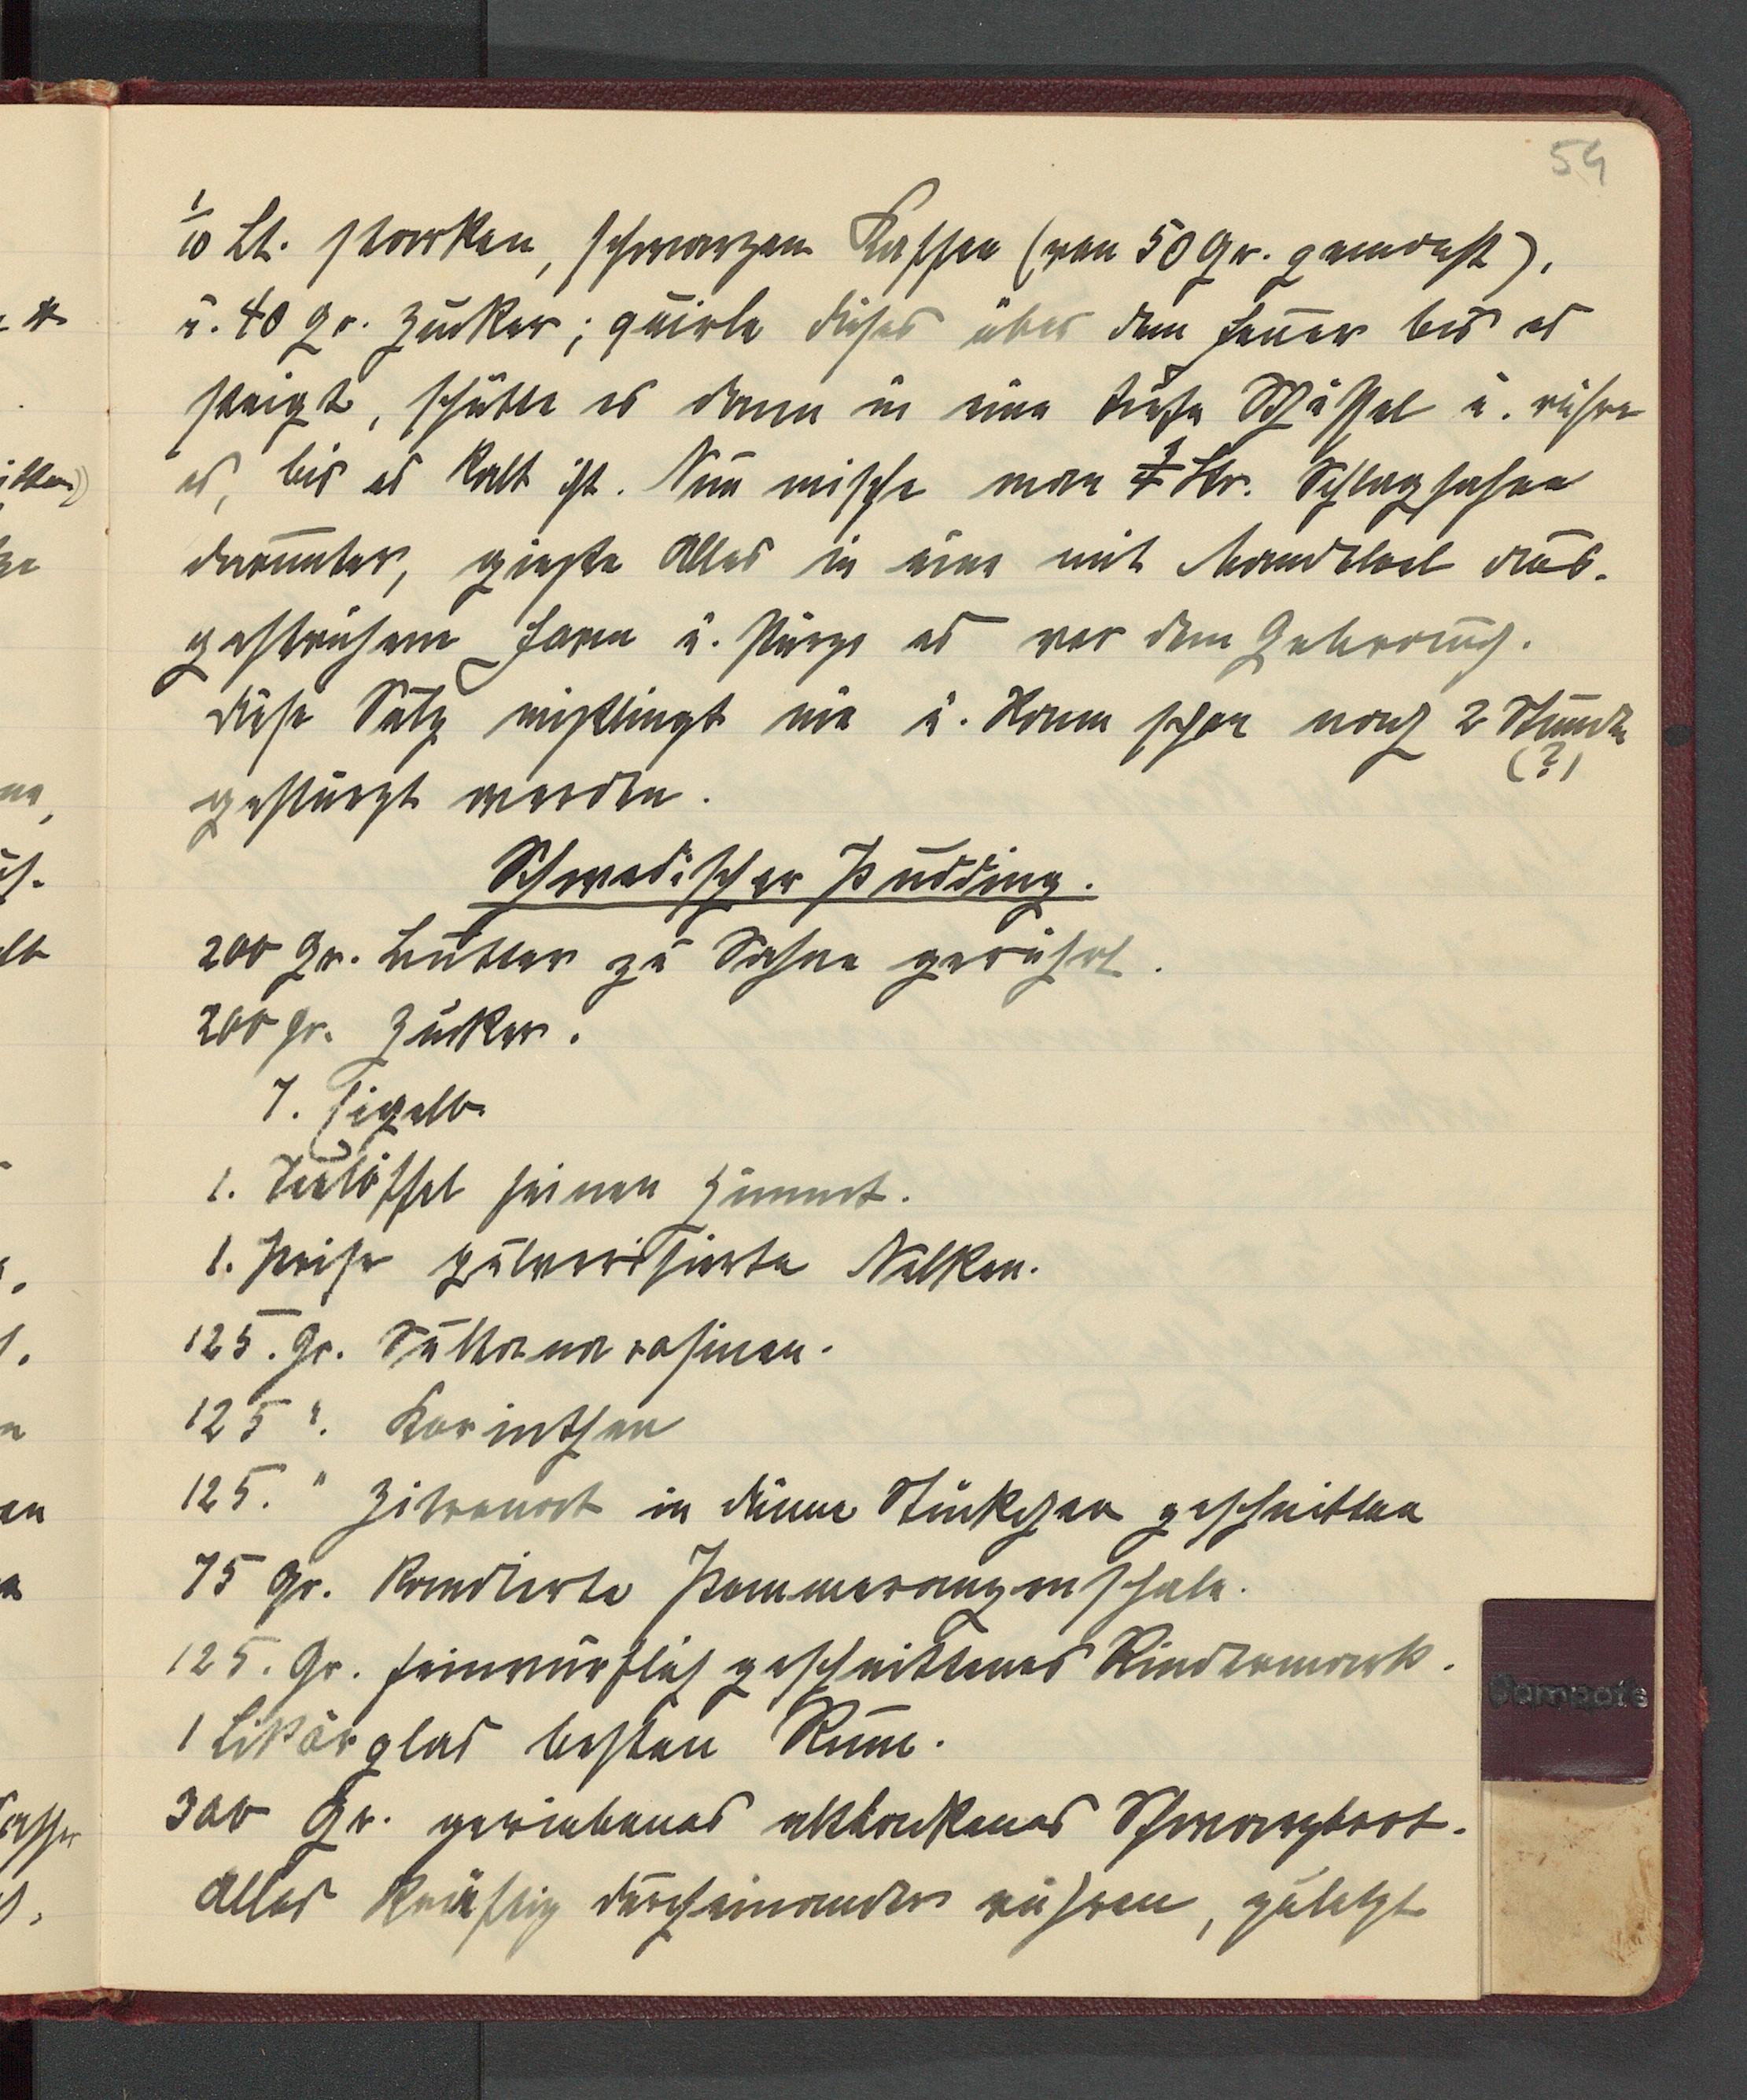 54
1/10 Lt. starken, schwarzen Kaffee (von 50 Gr. gemacht),
u. 40 gr. Zucker; quirle dieses über dem Feuer bis es
steigt, schütte es dann in eine tiefe Schüssel u. rühre
es, bis es kalt ist. Nun mische man Ltr. Schlagsahne
darunter, gieße Alles in eine mit Mandeloel aus-
gestrichene Form u. stürze es vor dem Gebrauch.
Diese Sülz mißlingt nie u. kann schon nach 2 Stunden
(?)
gestürzt werden.
Schwedischer Pudding.
200 Gr. Butter zu Sahne gerührt.
200 gr. Zucker.
7. Eigelb
1. Teelöffel feinen Zimmt.
1. Prise pulverisierte Nelken.
125. Gr. Sultanarosinen.
125 ". Korinthen
125. " Zitronat in dünne Stückchen geschnitten
75 gr. kandierte Pommeranzenschale.
125. Gr. feinwürflich geschnittenes Rindermark.
1 Likörglas besten Rum.
300 Gr. geriebenes altbackenes Schwarzbrot.
Alles kräftig durcheinander rühren, zuletzt
Compots